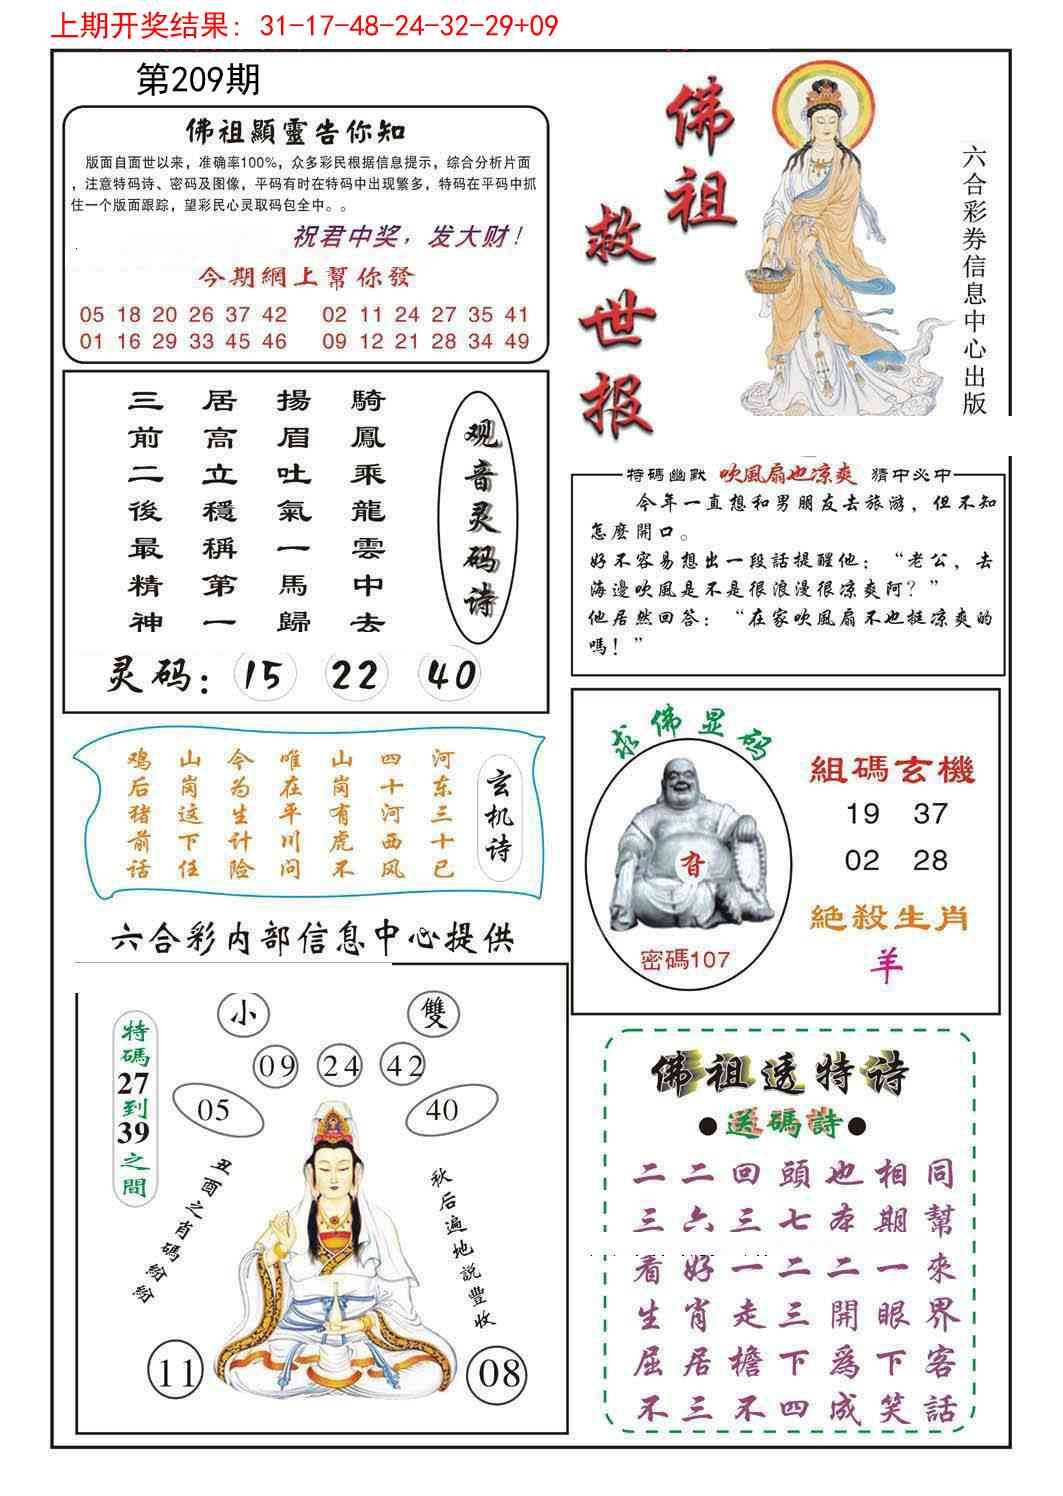 上期开奖结果：31-17-48-24-32-29+09
第209期
佛祖顯靈告你知
版面自面世以来，准确率100%，众多彩民根据信息提示，综合分析片面
，注意特码诗、密码及图像，平码有时在特码中出现繁多，特码在平码中抓
住一个版面跟踪，望彩民心灵取码包全中。。
祝君中奖，发大财！
今期網上幫你發
05 18 20 26 37 42 02 11 24 27 35 41
01 16 29 33 45 46 09 12 21 28 34 49
佛祖
救世报
六合彩券信息中心出版
三居揚騎
前高眉鳳
二立吐乘
後穩氣龍
最稱一雲
精第馬中
神一歸去
观音灵码诗
灵码：15 22 40
特碼幽默 吹風扇也凉爽 猜中必中
今年一直想和男朋友去旅游，但不知
怎麼開口。
好不容易想出一段話提醒他：“老公，去
海邊吹風是不是很浪漫很凉爽阿？”
他居然回答：“在家吹風扇不也挺凉爽的
嗎！”
鸡山今唯山四河
后岗为在岗十东
猪这生平有河三
前下计川虎西十
话任险问不风已
玄机诗
求佛显码
密碼107
組碼玄機
19 37
02 28
絕殺生肖
羊
六合彩内部信息中心提供
小 雙
09 24 42
05 40
特碼27到39之間
丑酉之肖碼紛紛
秋后遍地説豐收
11 08
佛祖透特诗
●送碼詩●
二二回頭也相同
三六三七本期幫
看好一二二一來
生肖走三開眼界
屈居檐下爲下客
不三不四成笑話